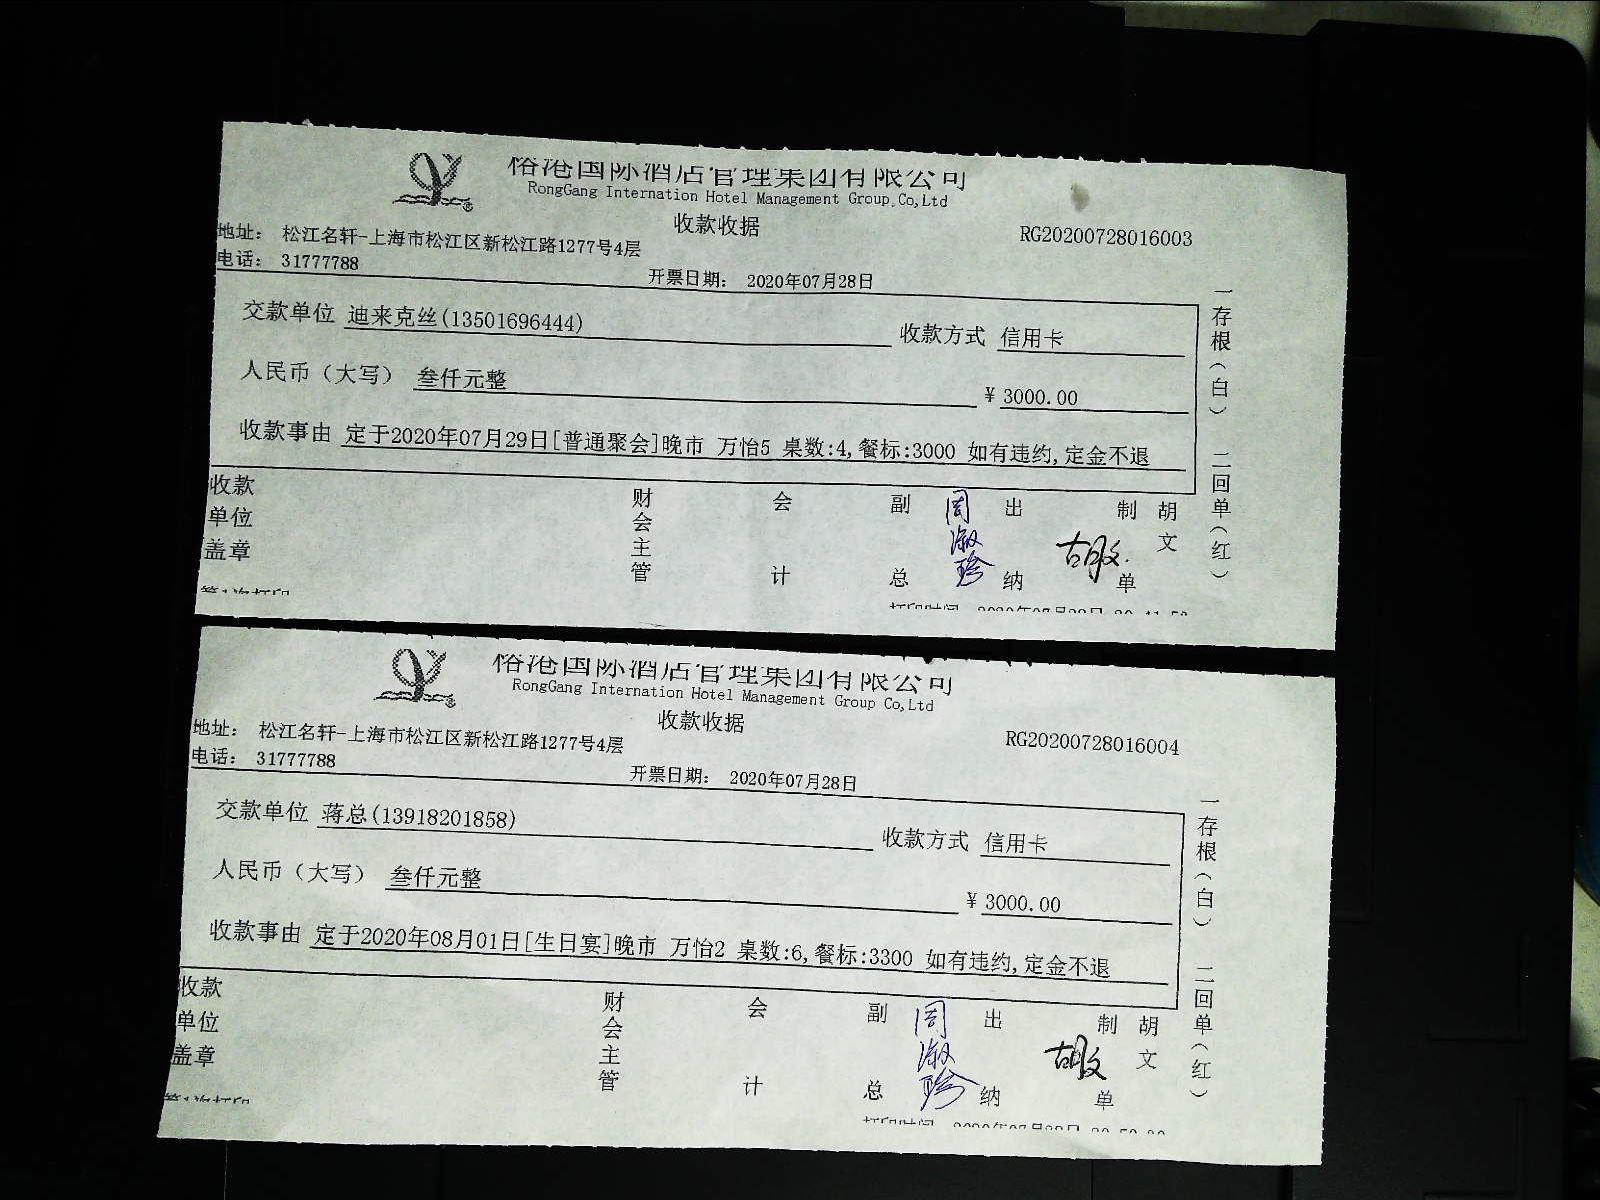 榕港国际酒店管理集团有限公司
RongGang Internation Hotel Management Group.Co,Ltd
收款收据
RG20200728016003
地址： 松江名轩-上海市松江区新松江路1277号4层
电话： 31777788
开票日期： 2020年07月28日
交款单位 迪来克丝(13501696444) 收款方式 信用卡
人民币（大写） 叁仟元整 ¥ 3000.00
收款事由 定于2020年07月29日[普通聚会]晚市 万怡5 桌数:4,餐标:3000 如有违约,定金不退
一存根（白） 二回单（红）
收款单位盖章 财会主管 会计 副总 周淑珍 出纳 胡文 制单 胡文
第1次打印
榕港国际酒店管理集团有限公司
RongGang Internation Hotel Management Group Co,Ltd
收款收据
RG20200728016004
地址： 松江名轩-上海市松江区新松江路1277号4层
电话： 31777788
开票日期： 2020年07月28日
交款单位 蒋总(13918201858) 收款方式 信用卡
人民币（大写） 叁仟元整 ¥ 3000.00
收款事由 定于2020年08月01日[生日宴]晚市 万怡2 桌数:6,餐标:3300 如有违约,定金不退
一存根（白） 二回单（红）
收款单位盖章 财会主管 会计 副总 周淑珍 出纳 胡文 制单 胡文
第1次打印